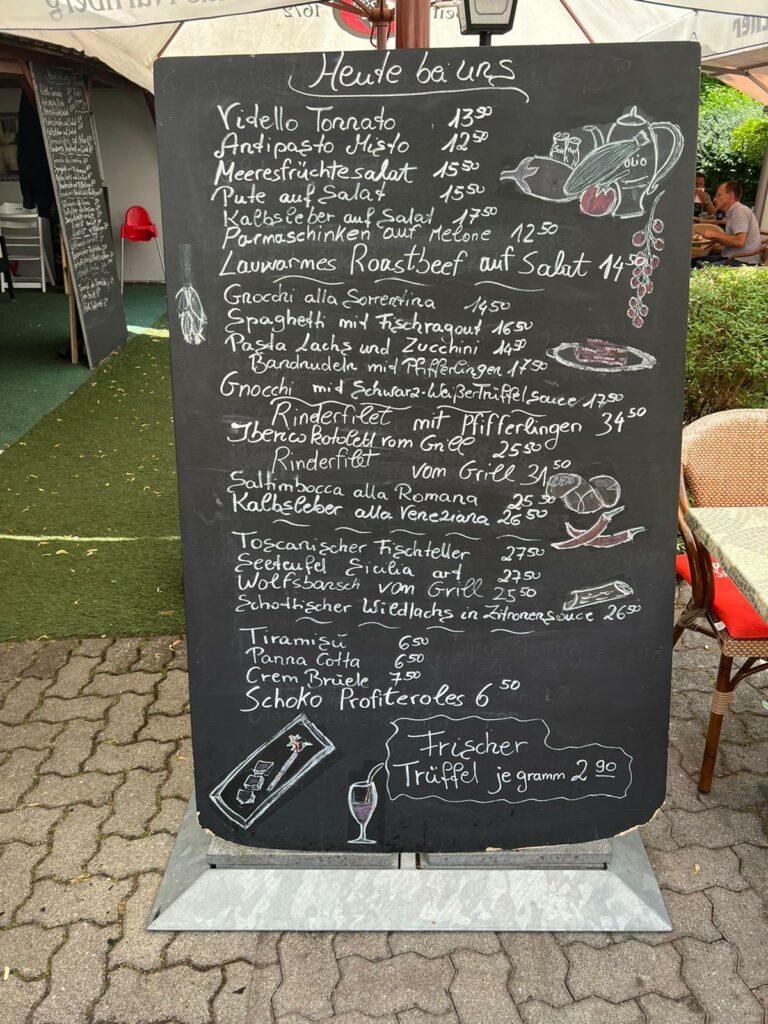 1672
Heute bei uns
Vidello Tonnato 13⁵⁰
Antipasto Misto 12⁵⁰
Meeresfrüchtesalat 15⁵⁰
Pute auf Salat 15⁵⁰
Kalbsleber auf Salat 17⁵⁰
Parmaschinken auf Melone 12⁵⁰
Lauwarmes Roastbeef auf Salat 14⁵⁰
OLIO
Gnocchi alla Sorrentina 14⁵⁰
Spaghetti mit Fischragout 16⁵⁰
Pasta Lachs und Zucchini 14⁵⁰
Bandnudeln mit Pfifferlingen 17⁵⁰
Gnocchi mit Schwarz-Weißer Trüffelsauce 17⁵⁰
Rinderfilet mit Pfifferlingen 34⁵⁰
Iberico Kotolett vom Grill 25⁵⁰
Rinderfilet vom Grill 31⁵⁰
Saltimbocca alla Romana 25⁵⁰
Kalbsleber alla Veneziana 26⁵⁰
Toscanischer Fischteller 27⁵⁰
Seeteufel Sicilia art 27⁵⁰
Wolfsbarsch vom Grill 25⁵⁰
Schottischer Wildlachs in Zitronensouce 26⁵⁰
Tiramisú 6⁵⁰
Panna Cotta 6⁵⁰
Crem Brüele 7⁵⁰
Schoko Profiteroles 6⁵⁰
Frischer
Trüffel je gramm 2⁹⁰